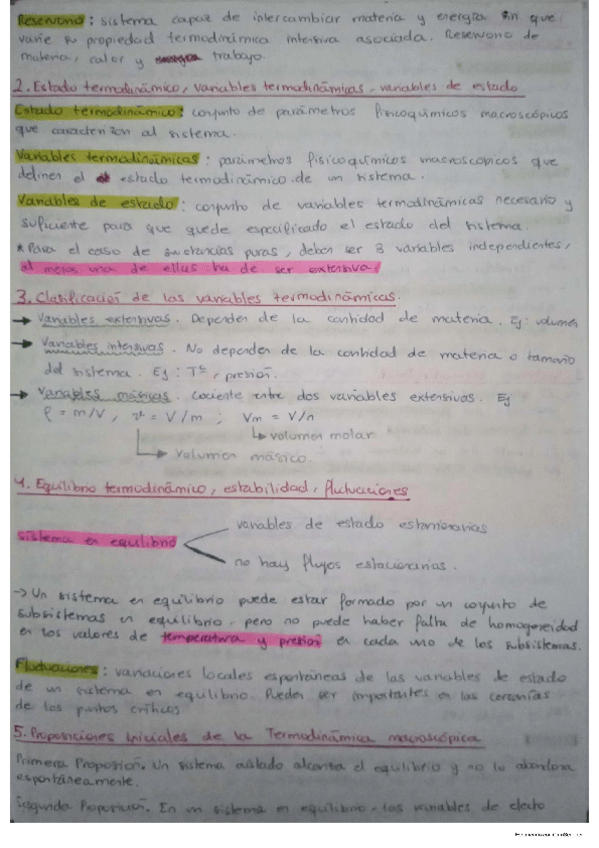 Reservorio: sistema capaz de intercambiar materia y energía sin que
varíe su propiedad termodinámica intensiva asociada. Reservorio de
materia, calor y trabajo.
2. Estado termodinámico, variables termodinámicas, variables de estado
Estado termodinámico: conjunto de parámetros fisicoquímicos macroscópicos
que caracterizan al sistema.
Variables termodinámicas: parámetros fisicoquímicos macroscópicos que
definen el estado termodinámico de un sistema.
Variables de estado: conjunto de variables termodinámicas necesario y
suficiente para que quede especificado el estado del sistema.
* Para el caso de sustancias puras, deben ser 3 variables independientes,
al menos una de ellas ha de ser extensiva.
3. Clasificación de las variables termodinámicas.
→ Variables extensivas. Dependen de la cantidad de materia. Ej: volumen
→ Variables intensivas. No dependen de la cantidad de materia o tamaño
del sistema. Ej: Tª, presión.
→ Variables másicas. Cociente entre dos variables extensivas. Ej
ρ = m/V, v = V/m ; Vm = V/n
↳ volumen molar
↳ volumen másico.
4. Equilibrio termodinámico, estabilidad, flutuaciones
variables de estado estacionarias
sistema en equilibrio
no hay flujos estacionarios.
→ Un sistema en equilibrio puede estar formado por un conjunto de
subsistemas en equilibrio, pero no puede haber falta de homogeneidad
en los valores de temperatura y presión en cada uno de los subsistemas.
Fluctuaciones: variaciones locales espontáneas de las variables de estado
de un sistema en equilibrio. Pueden ser importantes en las cercanías
de los puntos críticos
5. Proposiciones iniciales de la Termodinámica macroscópica
Primera Proposición. Un sistema aislado alcanza el equilibrio y no lo abandona
espontáneamente.
Segunda Proposición. En un sistema en equilibrio los variables de efecto